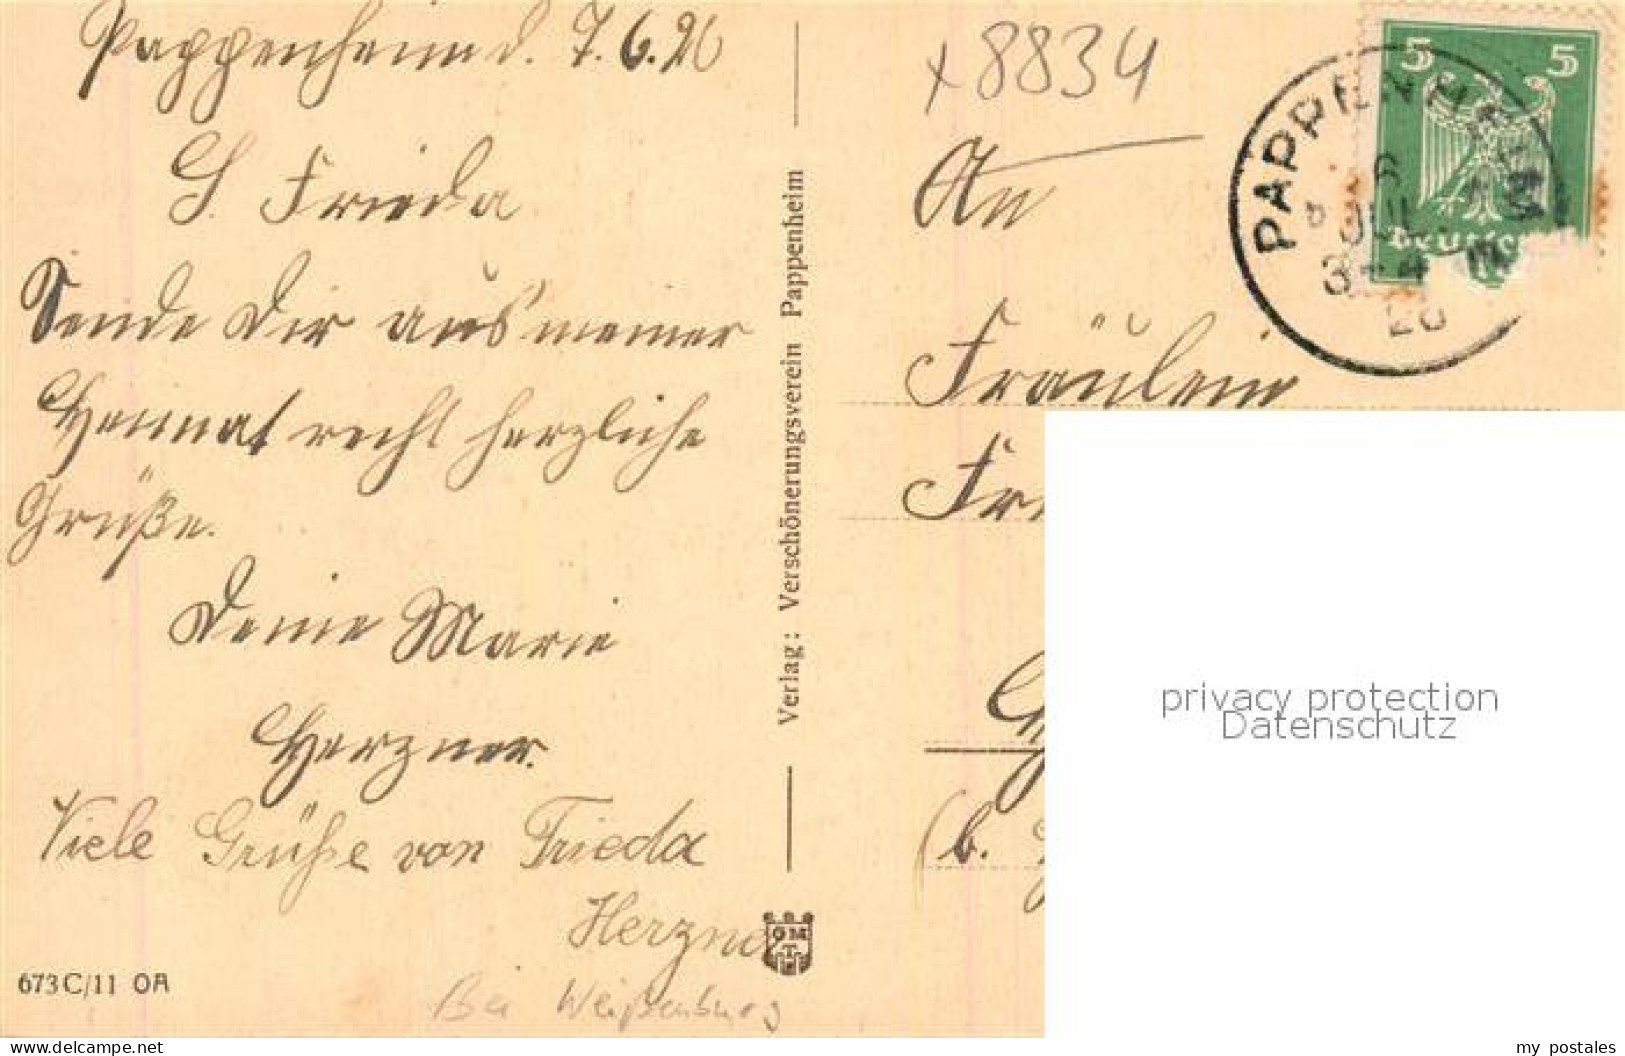 Pappenheim d. 7.6.26
L. Frieda
Sende Dir aus meiner
Heimat recht herzliche
Grüße.
Deine Marie
Herzner.
Viele Grüße von Frieda
Herzner
Bei Weißenburg
673 C/11 OA
Verlag: Verschönerungsverein Pappenheim
x 8834
5 5
PAPPENHEIM
6
JUL
3-4 N
26
An
Fräulein
Fr
(b.
privacy protection
Datenschutz
www.delcampe.net
my_postales